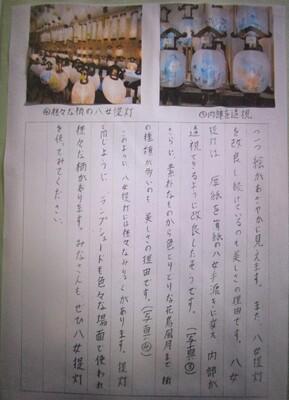 ④様々な柄の八女提灯
③内部を透視
つつ絵があざやかに見えます。また、八女提灯
を改良し続けているのも美しさの理由です。八女
提灯は、厚紙を薄紙の八女手漉きに変え、内部が
透視できるように改良したそうです。(写真③)
さらに、素朴なものから色とりどりな花鳥風月まで
の種類が多いのも、美しさの理由です。(写真④)
このように、八女提灯には様々なみりょくがあります。提灯
と同じように、ランプシェードも色々な場面で使われ
様々な柄があります。みなさんも、ぜひ八女提灯
を使ってみてください。